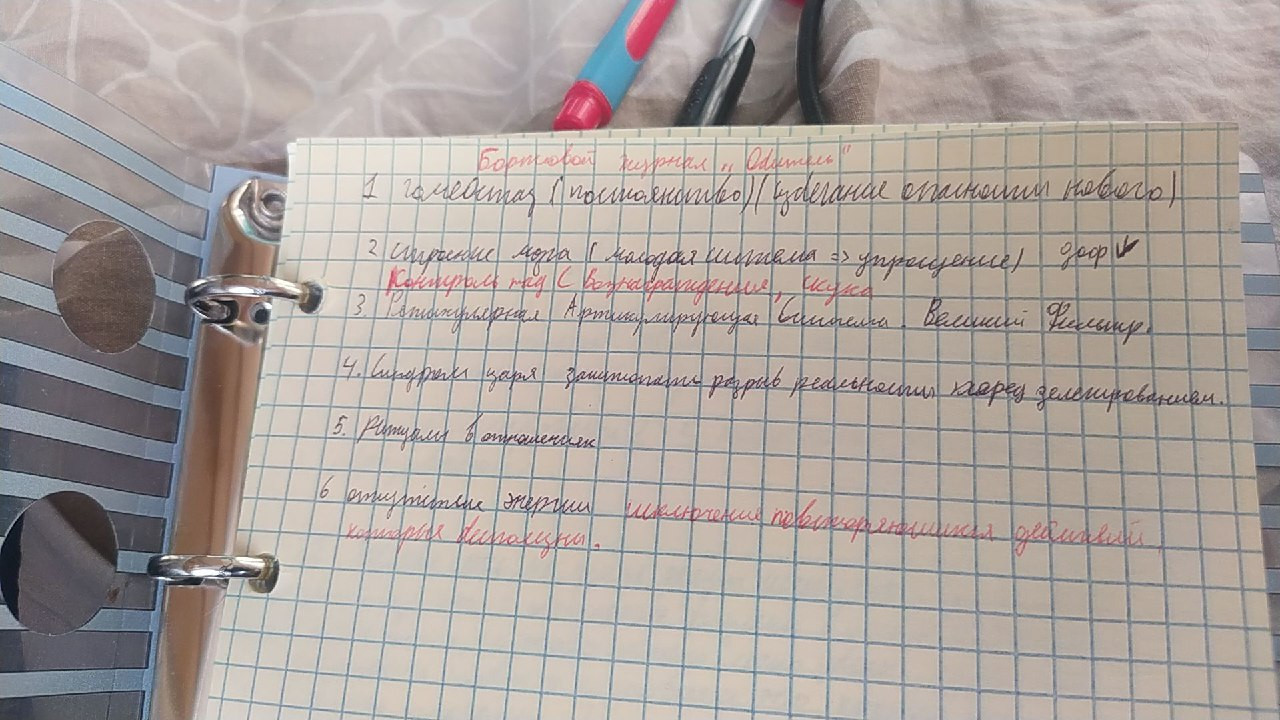 Бортовой журнал "Обитель"
1 гомеостаз (постоянство) (избегание опасности нового)
2 строение мозга (молодая система => упрощение) доф ↓
Контроль над С вознаграждения, скука
3. Ретикулярная Артикулирующая Система. Великий Фильтр.
4. Синдром царя заштопать разрыв реальности делегированием.
5. Ритуалы в отношениях
6 отсутствие энергии исключение повторяющихся действий,
которые бесполезны.